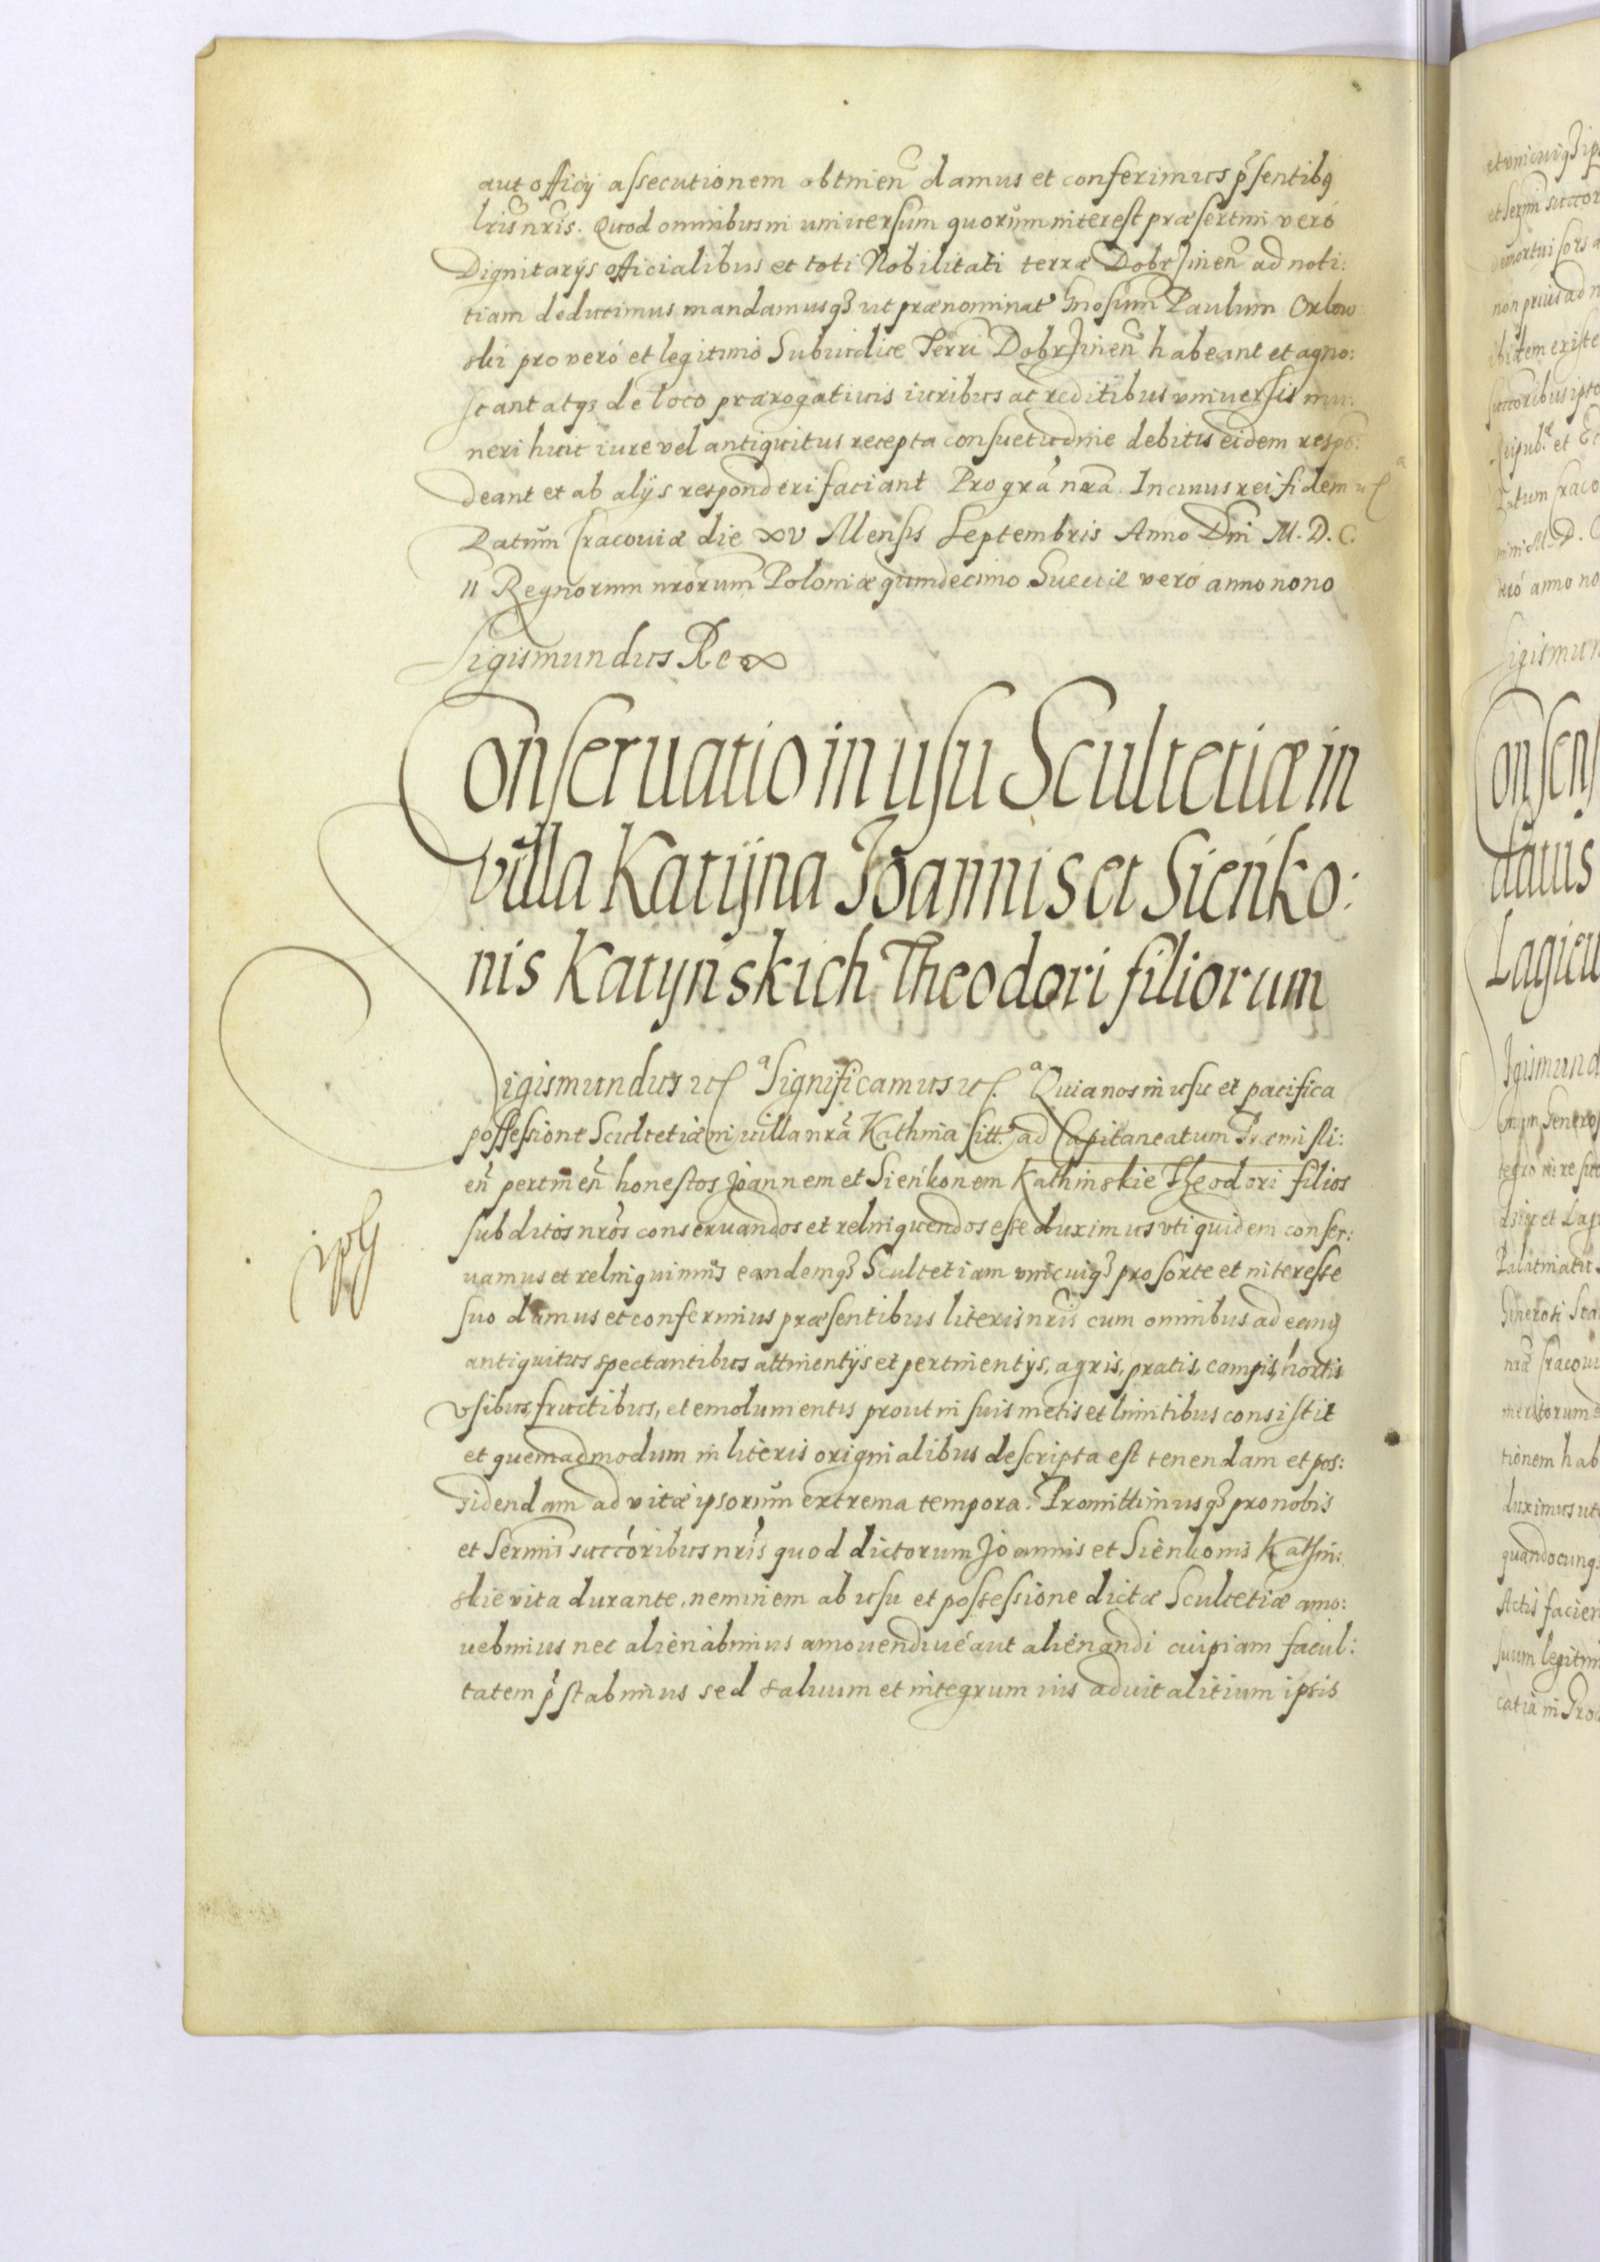 aut officij assecutionem obtinen̄ damus et conferimus p̄sentibq
l̄ris nr̄is. Quod omnibus in uniuersum quorum interest præsertim veró
Dignitarijs officialibus et toti Nobilitati terræ Dobrzinen̄ ad noti:
tiam deducimus mandamusqꝫ ut prænominat Gn̄osum Paulum Orlow
ski pro veró et legitimó Subiudice Terræ Dobrzinen̄ habeant et agno:
scant atqꝫ de loco prærogatiuis iuribus ac reditibus vniuersis mu:
neri huic iure vel antiquitus recepta consuetudine debitis eidem respō:
deant et ab alijs responderi faciant Pro grā nr̄a. In cuius rei fidem etc
Datum Cracouiæ die XV Mensis Septembris Anno Dn̄i M. D. C.
II Regnorum nr̄orum Poloniæ quindecimo Sueciæ veró anno nono
Sigismundus Rex
Conseruatio in usu Scultetiæ in
villa Katÿna Joannis et Sieńko:
nis Katÿńskich Theodori filiorum
Sigismundus etc Significamus etc. Quia nos in usu et pacifica
possessione Scultetiæ in uilla nr̄a Kathina sitt. ad Capitaneatum Præmisli:
en̄ pertinen̄ honestos Joannem et Sieńkonem Kathinskie Theodori filios
subditos nr̄os conseruandos et relinquendos esse duximus vti quidem conser:
uamus et relinquimus eandemqꝫ Scultetiam vnicuiqꝫ pro sorte et interesse
suo damus et conferimus præsentibus literis nr̄is cum omnibus ad eam
antiquitus spectantibus attinentijs et pertinentijs, agris, pratis, campis, hortis
vsibus, fructibus, et emolumentis prout in suis metis et limitibus consistit
et quemadmodum in literis originalibus descripta est tenendam et pos:
sidendam ad vitæ ipsorum extrema tempora. Promittimusqꝫ pro nobis
et Sermis succóribus nr̄is quod dictorum Joannis et Sienkonis Kathin:
skie vita durante, neminem ab usu et possessione dictæ Scultetiæ amo:
uebimus nec alienabimus amouendiué aut alienandi cuipiam facul:
tatem p̄stabimus sed saluum et integrum ius aduitalitium ipsis